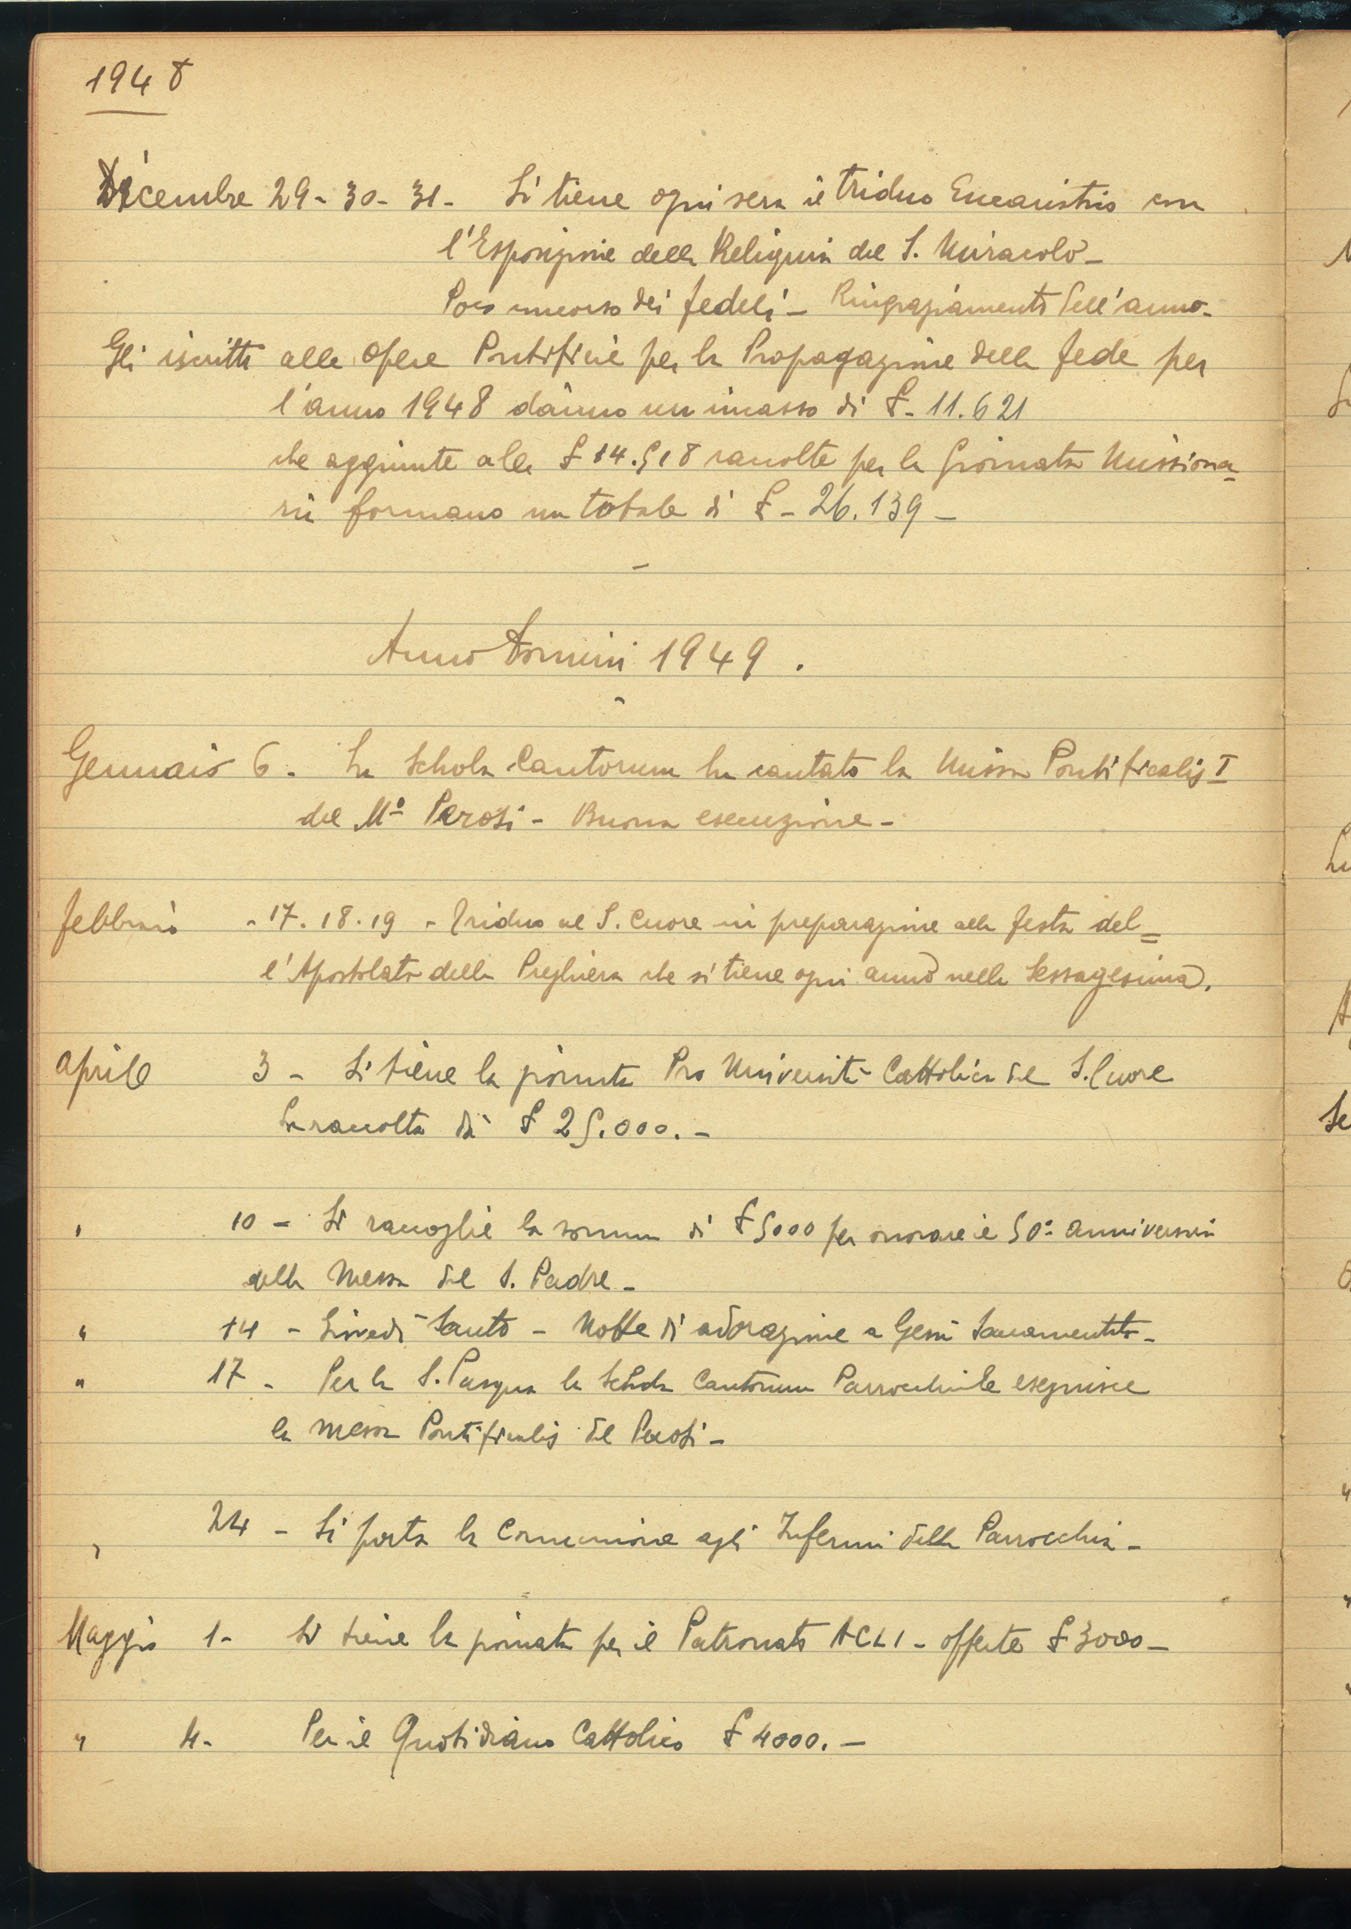 1948
Dicembre 29 - 30 - 31 - Si tiene ogni sera il triduo Eucaristico con
l'Esposizione della Reliquia del S. Miracolo -
Poco concorso dei fedeli - Ringraziamento dell'anno -
Gli iscritti alle Opere Pontificie per la Propagazione della fede per
l'anno 1948 danno un incasso di £ - 11.621
che aggiunte alle £ 14.518 raccolte per la Giornata Missiona-
ria formano un totale di £ - 26.139 -
-
Anno Domini 1949 .
-
Gennaio 6 - La Schola Cantorum ha cantato la Missa Pontificalis I
del M° Perosi - Buona esecuzione -
febbraio - 17. 18. 19 - Triduo al S. Cuore in preparazione alla festa del=
l'Apostolato della Preghiera che si tiene ogni anno nella Sessagesima.
Aprile 3 - Si tiene la giornata Pro Università Cattolica del S. Cuore
La raccolta dà £ 25.000. -
" 10 - Si raccoglie la somma di £ 5000 per onorare il 50° anniversario
della Messa del S. Padre -
" 14 - Giovedì Santo - Notte di adorazione a Gesù Sacramentato -
" 17 - Per la S. Pasqua la Schola Cantorum Parrocchiale eseguisce
la messa Pontificalis del Perosi -
" 24 - Si porta la Comunione agli Infermi della Parrocchia -
Maggio 1 - Si tiene la giornata per il Patronato ACLI - offerte £ 3000 -
" 4 - Per il Quotidiano Cattolico £ 4000. -